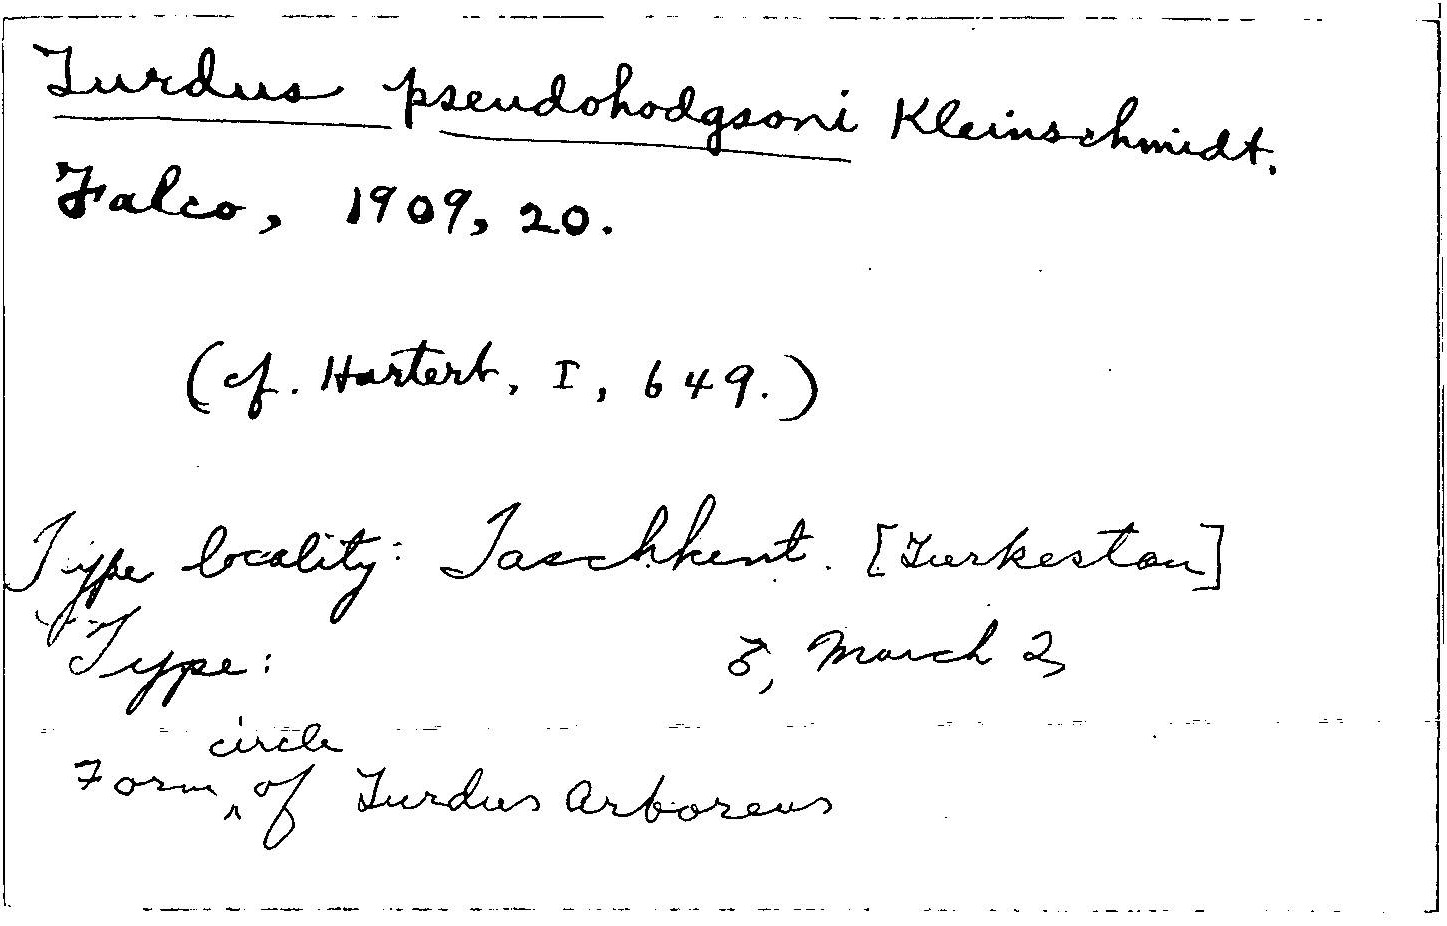 Turdus pseudohodgsoni Kleinschmidt.
Falco, 1909, 20.
(cf. Hartert, I, 649.)
Type locality: Taschkent. [Turkestan]
Type: ♂, March 2
Form circle of Turdus Arboreus